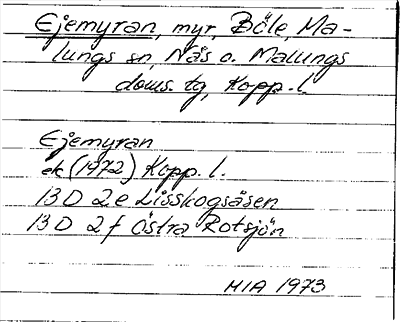 Ejemyran, myr, Böle, Ma-
lungs sn, Nås o. Malungs
doms. tg, Kopp. l.
Ejemyran
ek (1972) Kopp. l.
13 D 2 e Lisskogsåsen
13 D 2 f Östra Rotsjön
MIA 1973